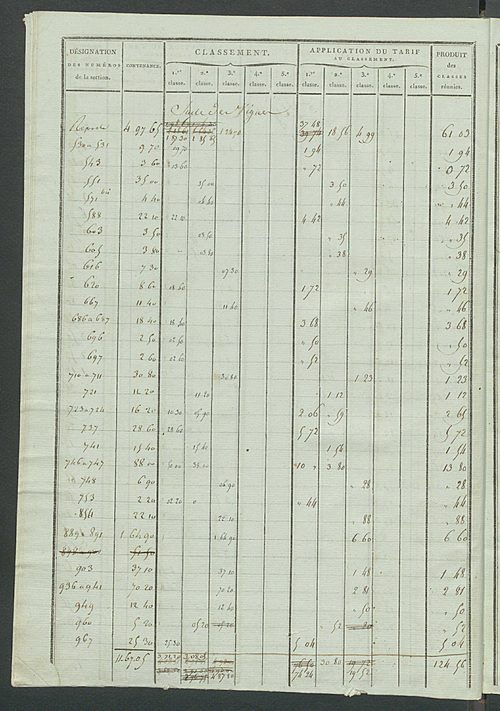 DÉSIGNATION DES NUMÉROS de la section. CONTENANCE. CLASSEMENT. APPLICATION DU TARIF AU CLASSEMENT. PRODUIT des CLASSES réunies.
1.re classe. 2.e classe. 3.e classe. 4.e classe. 5.e classe. 1.re classe. 2.e classe. 3.e classe. 4.e classe. 5.e classe.
Suite des Vignes
37 48
Report 4 97 65 18 56 4 99 61 03
530 a 531 9 70 09 70 1 94 1 94
543 3 60 03 60 " 72 0 72
551 35 00 35 00 3 50 3 50
571 bis 4 40 04 40 " 44 " 44
588 22 10 22 10 4 42 4 42
603 3 50 03 50 " 35 " 35
605 3 80 03 80 " 38 " 38
616 7 30 07 30 " 29 " 29
620 8 60 08 60 1 72 1 72
667 11 40 11 40 " 46 " 46
686 a 687 18 40 18 40 3 68 3 68
696 2 50 02 50 " 50 " 50
697 2 60 02 60 " 52 " 52
710 a 711 30 80 30 80 1 23 1 23
721 11 20 11 20 1 12 1 12
723 a 724 16 20 10 30 05 90 2 06 " 59 2 65
737 28 60 28 60 5 72 5 72
741 15 40 15 40 1 54 1 54
746 a 747 88 00 50 00 38 00 10 " 3 80 13 80
748 6 90 06 90 " 28 " 28
753 2 20 02 20 " 44 " 44
854 22 10 22 10 " 88 " 88
889 a 891 1 64 90 1 64 90 6 60 6 60
903 37 10 37 10 1 48 1 48
936 a 941 70 20 70 20 2 81 2 81
949 12 40 12 40 " 50 " 50
960 5 20 05 20 " 52 " 52
967 25 30 25 30 5 04 5 04
11 67 05 30 80 124 56
74 24 19 52